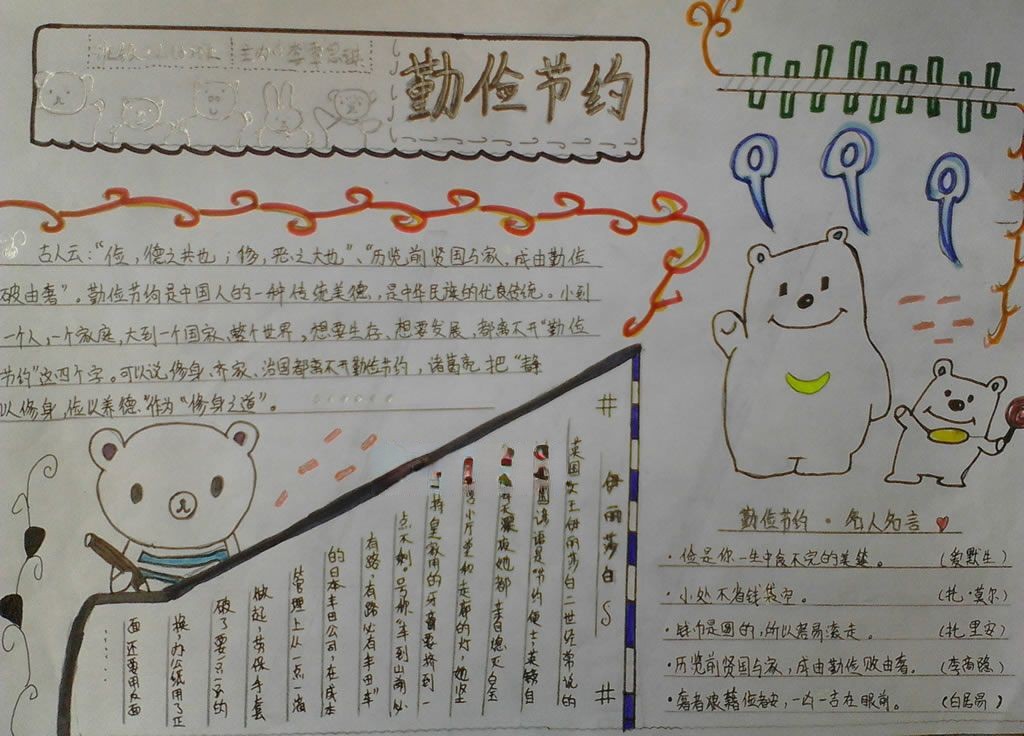 勤俭节约
古人云:“俭,德之共也;侈,恶之大也”、“历览前贤国与家,成由勤俭
破由奢”。勤俭节约是中国人的一种传统美德,是中华民族的优良传统。小到
一个人,一个家庭,大到一个国家、整个世界,想要生存、想要发展,都离不开“勤俭
节约”这四个字。可以说修身、齐家、治国都离不开勤俭节约,诸葛亮把“静
以修身,俭以养德”作为“修身之道”。
伊丽莎白
英国女王伊丽莎白二世经常说的
英国谚语是“节约便士英镑自
每天深夜她都亲自熄灭白金
小厅堂和走廊的灯,她坚
持皇家用的牙膏要挤到一
点不剩。号称“车到山前必
有路,有路必有丰田车”
的日本丰田公司,在成本
管理上从一点一滴
做起,劳保手套
破了要一只一只的
换,办公纸用了正
面还要用反面
勤俭节约·名人名言
·俭是你一生中食不完的美筵。(爱默生)
·小处不省钱袋空。(托·莫尔)
·钱币是圆的,所以容易滚走。(扎里安)
·历览前贤国与家,成由勤俭败由奢。(李商隐)
·奢者狼藉俭者安,一凶一吉在眼前。(白居易)